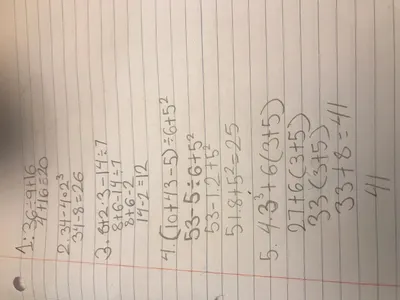 1. 36÷9+16
4+16=20
2. 34-4∘2³
34-8=26
3. 8+2·3-14÷7
8+6-14÷7
8+6-2
14-2=12
4. (10+43-5)÷6+5²
53-5÷6+5²
53-1.2+5²
51.8+5²=25
5. 4·3³+6(3+5)
27+6(3+5)
33(3+5)
33+8=41
41